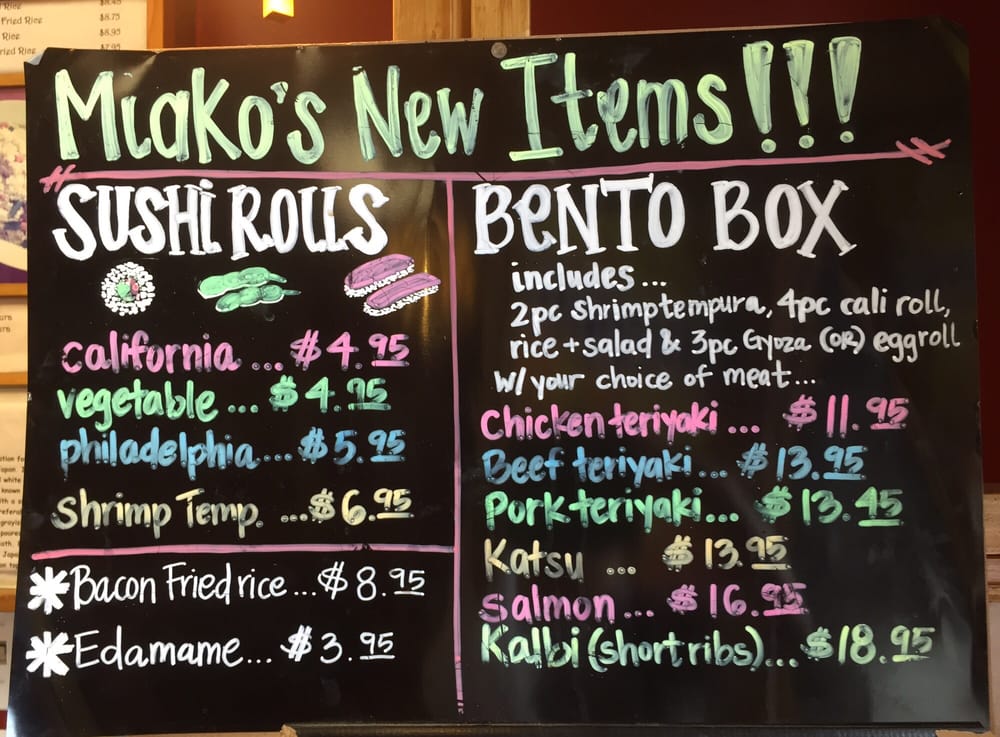 Rice $8.45
Fried Rice $8.75
Rice $8.95
Fried Rice $7.95
Miako's New Items!!!
SUSHi ROLLS
california ... $4.95
vegetable ... $4.95
philadelphia... $5.95
shrimp Temp. ...$6.95
*Bacon Fried rice ...$8.95
*Edamame... $3.95
BeNTO BOX
includes...
2pc shrimp tempura, 4pc cali roll,
rice + salad & 3pc Gyoza (OR) eggroll
w/ your choice of meat...
Chicken teriyaki ... $11.95
Beef teriyaki... $13.95
Pork teriyaki... $13.45
Katsu ... $13.95
Salmon ... $16.95
Kalbi (short ribs)... $18.95